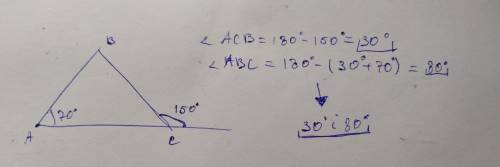 B
70°
150°
A
C
∠ACB = 180° - 150° = 30°
∠ABC = 180° - (30° + 70°) = 80°
30° i 80°